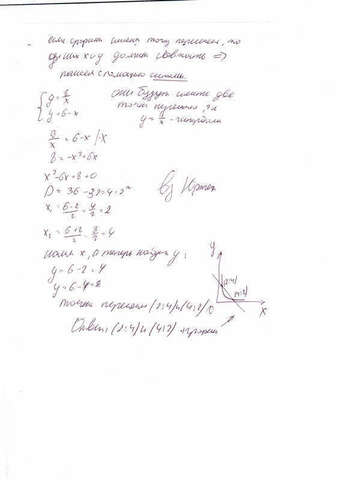 если графики имеют точку пересечен, то
функ x и y должны совпасть =>
решаем с помощью системы.
y=8/x они будут иметь две
y=6-x точки пересечен, т.к
y=8/x - гипербола
8/x = 6-x |·x
8 = -x²+6x
x²-6x+8=0
D = 36-32=4=2²
x₁ = 6-2/2 = 4/2 = 2
x₂ = 6+2/2 = 8/2 = 4
нашли x, а теперь найдем y:
y=6-2=4
y=6-4=2
точки пересечен (2;4) и (4;2)
Ответ: (2;4) и (4;2) +график
y
(2;4)
(4;2)
0
x
by